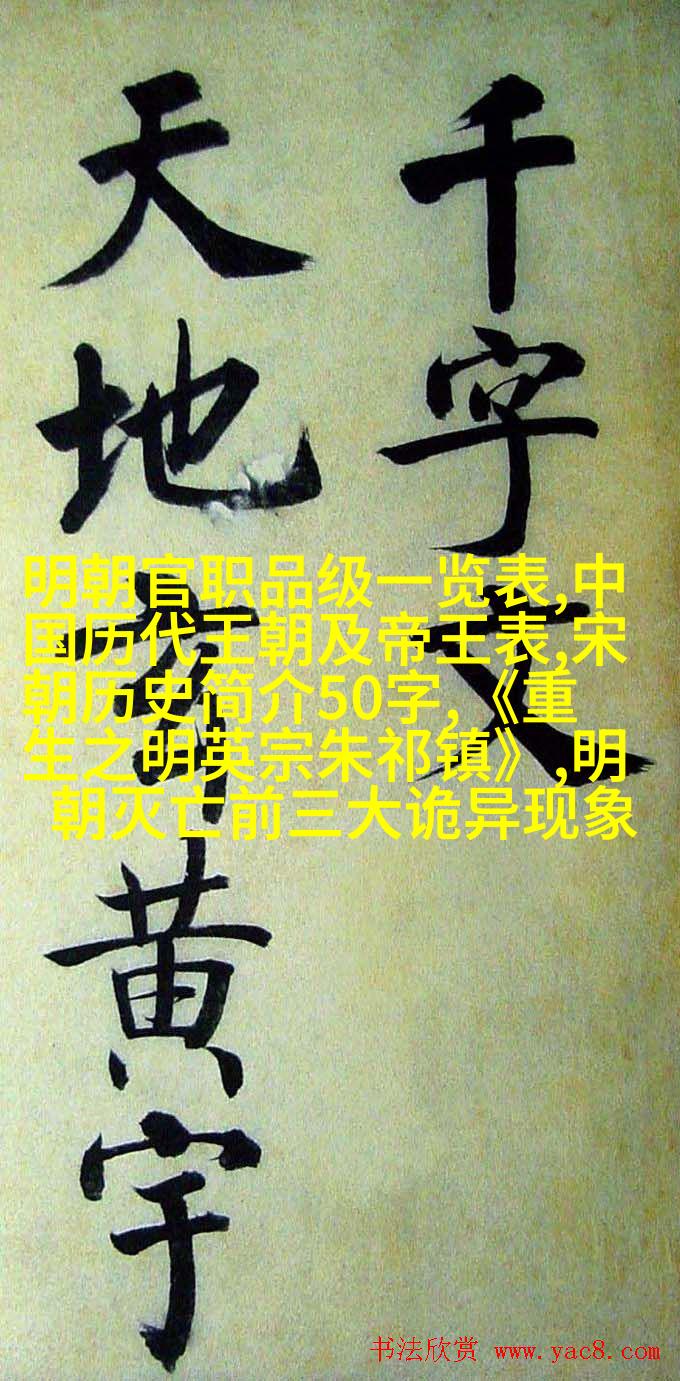 千字文
天地玄黄宇
明朝官职品级一览表,中
国历代王朝及帝王表,宋
朝历史简介50字,《重
生之明英宗朱祁镇》,明
朝灭亡前三大诡异现象
书法欣赏 www.yac8.com